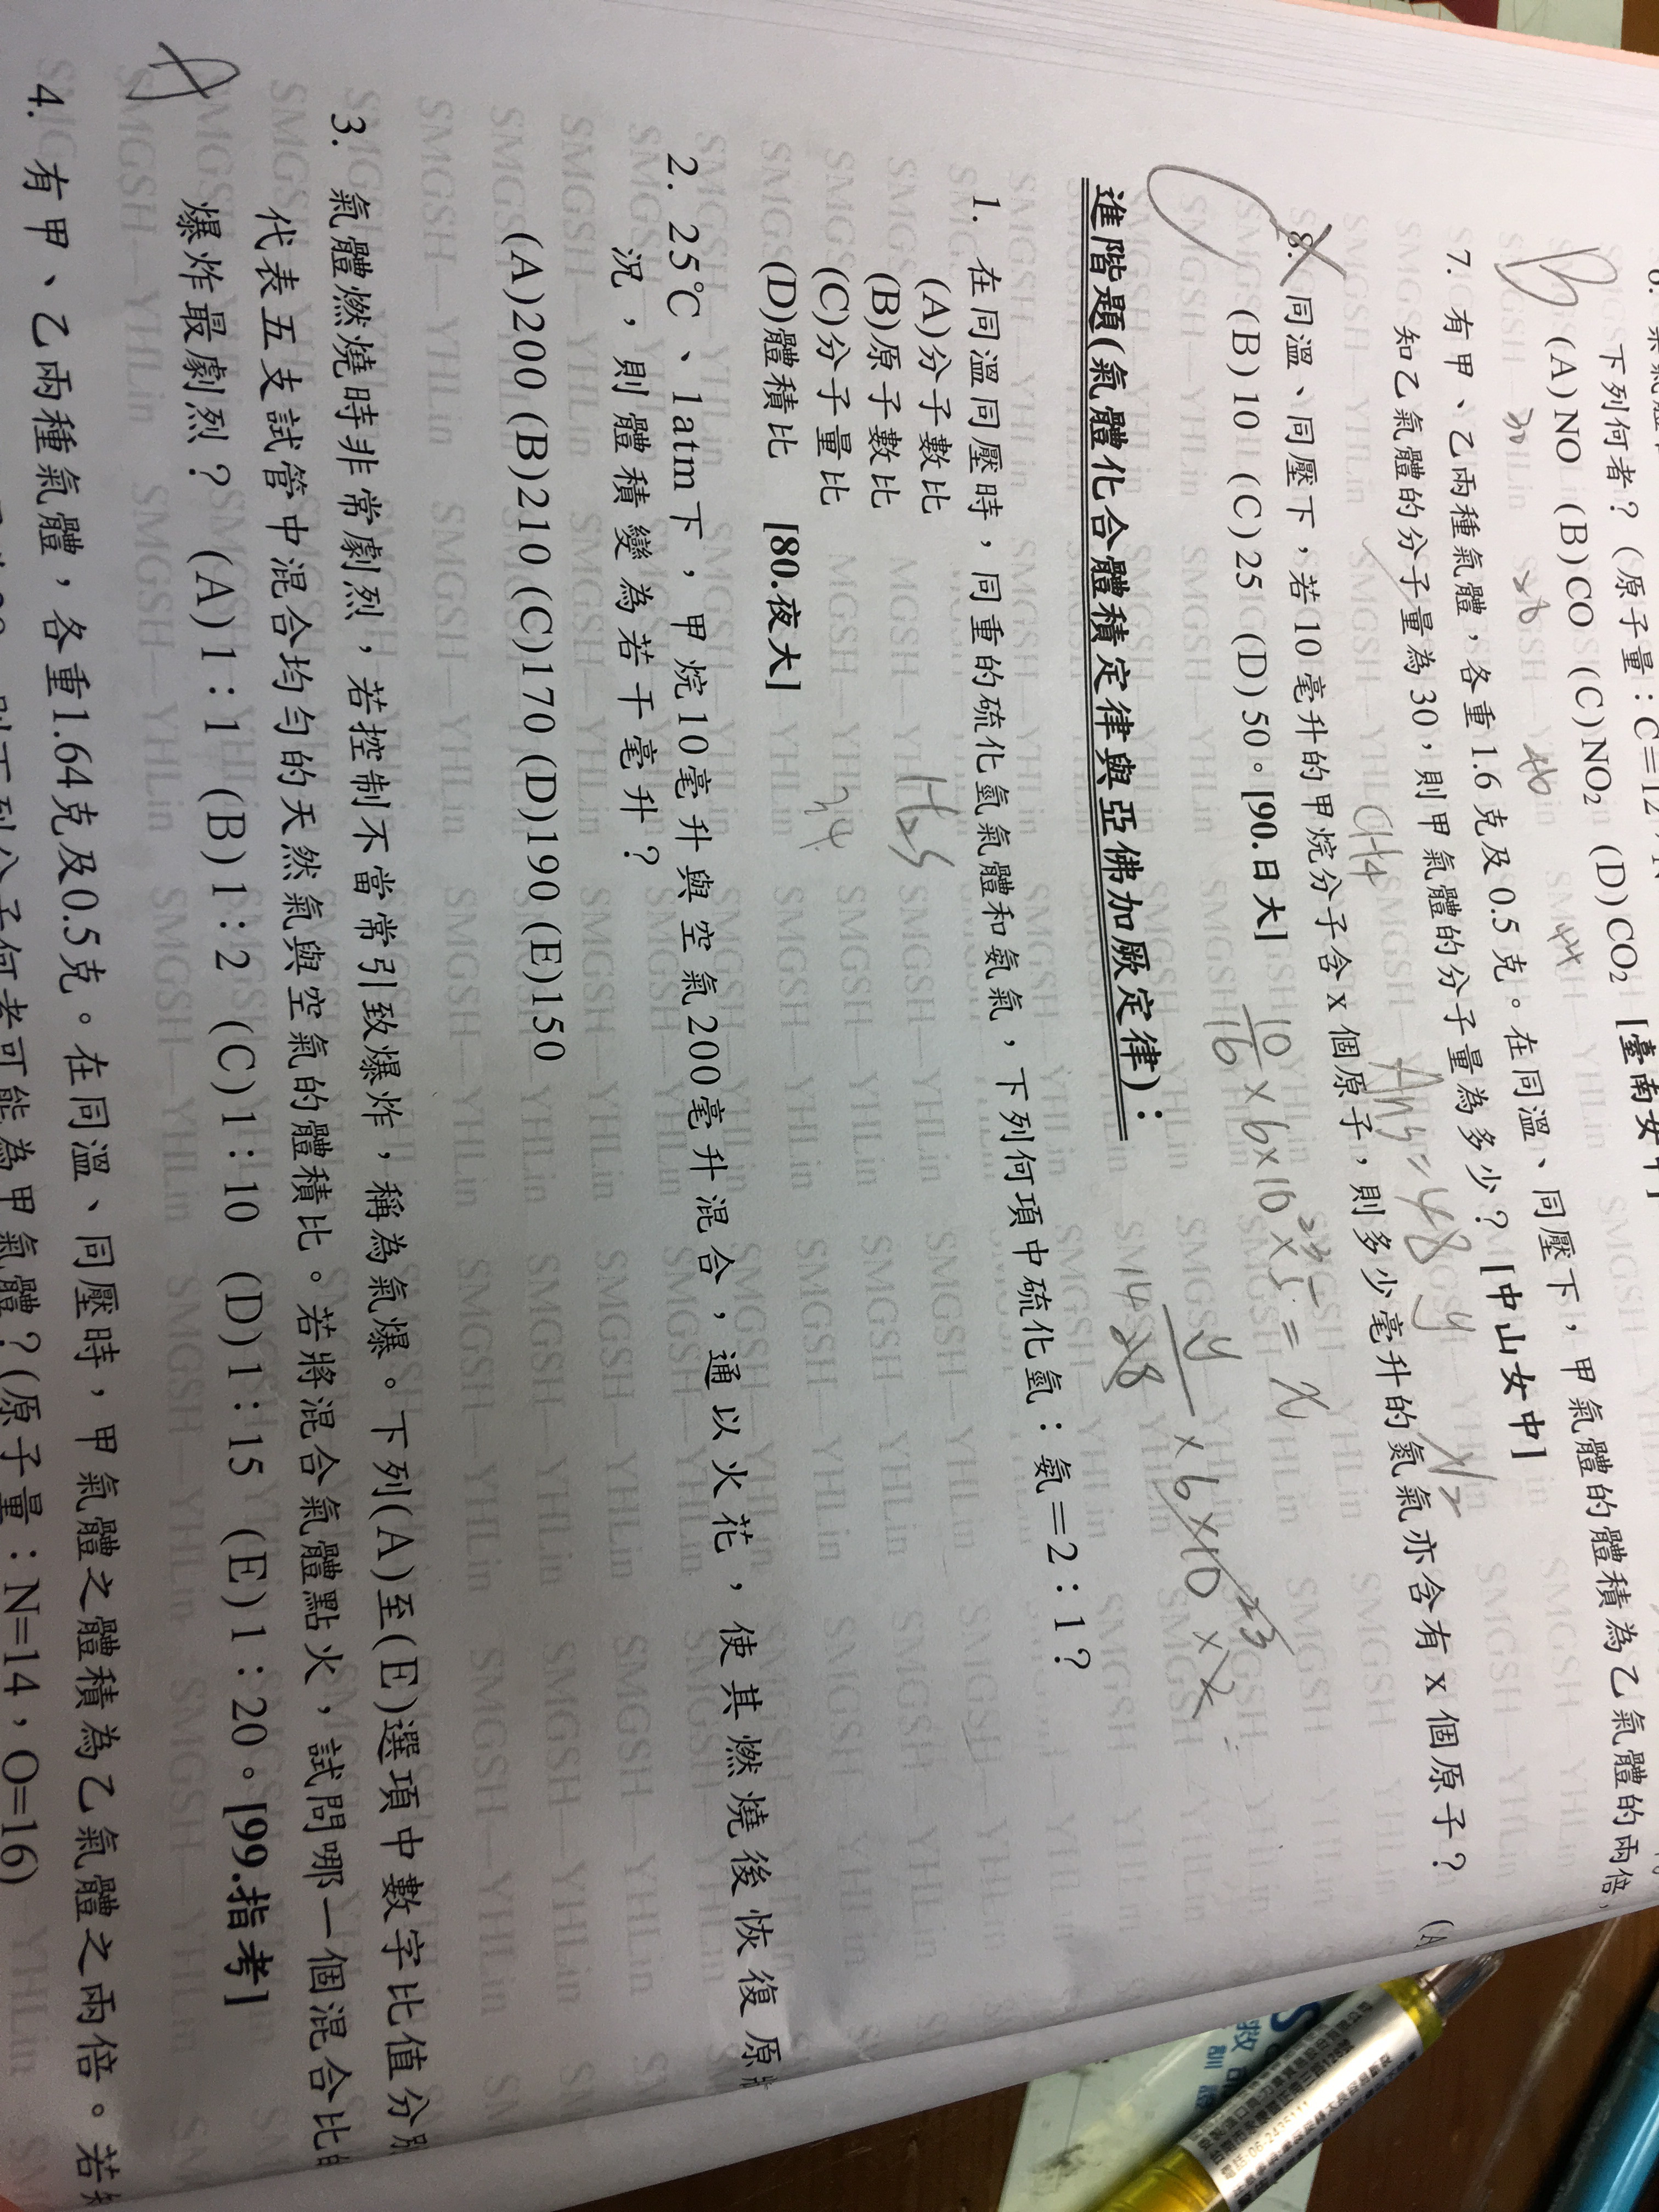 下列何者？(原子量：C=12，N
(A)NO (B)CO (C)NO₂ (D)CO₂ [臺南女中]
30 28 46 44
7. 有甲、乙兩種氣體，各重1.6克及0.5克。在同溫、同壓下，甲氣體的體積為乙氣體的兩倍，
知乙氣體的分子量為30，則甲氣體的分子量為多少？[中山女中]
B
CH4 Ans=48 y N2
8. 同溫、同壓下，若10毫升的甲烷分子含x個原子，則多少毫升的氮氣亦含有x個原子？ (A
(B)10 (C)25 (D)50。[90.日大]
10/16 × 6×10²³ × 5 = x
y/28 × 6×10²³ × 2 =
進階題(氣體化合體積定律與亞佛加厥定律)：
1. 在同溫同壓時，同重的硫化氫氣體和氨氣，下列何項中硫化氫：氨=2：1？
(A)分子數比
(B)原子數比 H2S
(C)分子量比 34
(D)體積比 [80.夜大]
2. 25℃、1atm下，甲烷10毫升與空氣200毫升混合，通以火花，使其燃燒後恢復原
況，則體積變為若干毫升？
(A)200 (B)210 (C)170 (D)190 (E)150
3. 氣體燃燒時非常劇烈，若控制不當常引致爆炸，稱為氣爆。下列(A)至(E)選項中數字比值分別
代表五支試管中混合均勻的天然氣與空氣的體積比。若將混合氣體點火，試問哪一個混合比的
爆炸最劇烈？ (A)1：1 (B)1：2 (C)1：10 (D)1：15 (E)1：20。[99.指考]
4. 有甲、乙兩種氣體，各重1.64克及0.5克。在同溫、同壓時，甲氣體之體積為乙氣體之兩倍。若
則下列分子何者可能為甲氣體？(原子量：N=14，O=16)
SMGSH—YHLin